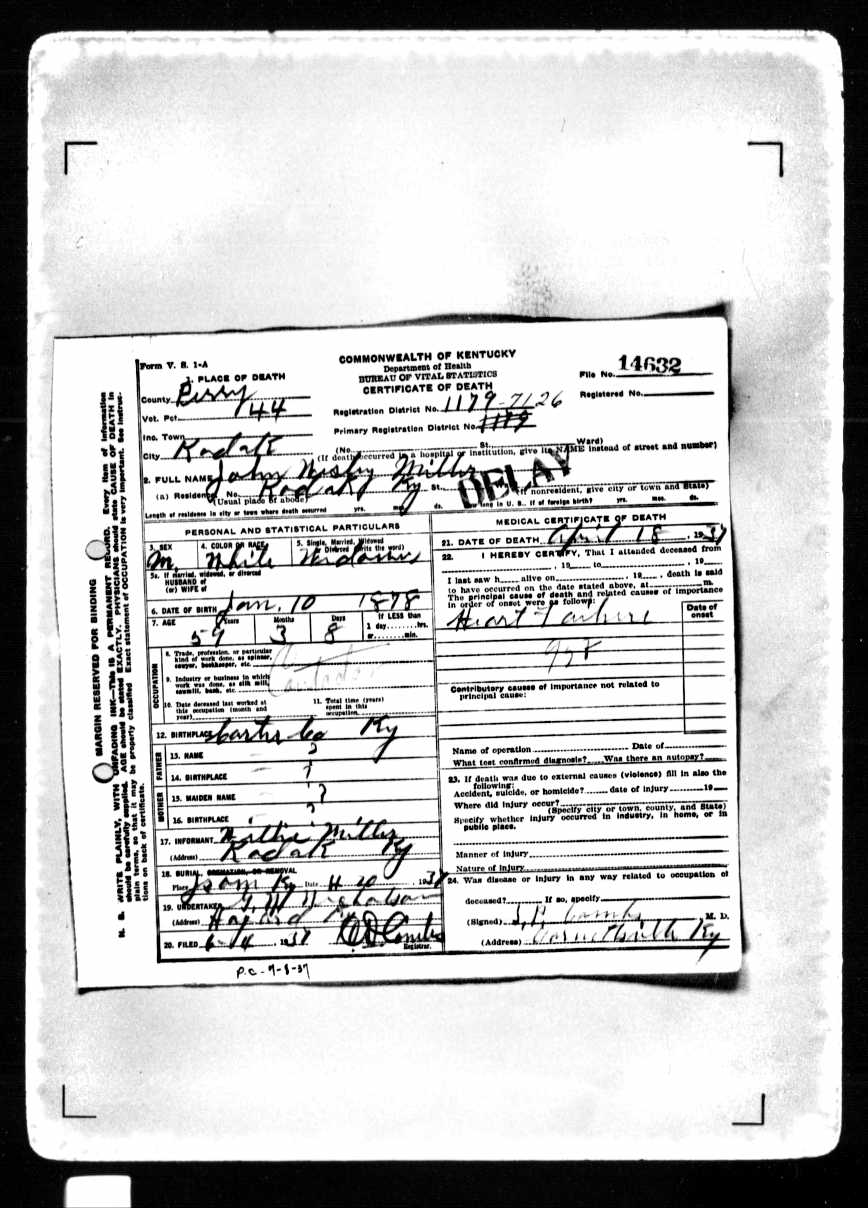 COMMONWEALTH OF KENTUCKY
Department of Health
BUREAU OF VITAL STATISTICS
CERTIFICATE OF DEATH
Form V. S. 1-A
File No. 14632
Registered No.
1. PLACE OF DEATH
County Perry
Vot. Pct. 144
Inc. Town
City Kodak
Registration District No. 1179-7126
Primary Registration District No. 1179
(No. St. Ward)
(If death occurred in a hospital or institution, give its NAME instead of street and number)
2. FULL NAME John Miller
(a) Residence. No. Kodak Ky St.
(Usual place of abode) (If nonresident, give city or town and State)
DELAY
Length of residence in city or town where death occurred yrs. mos. ds. How long in U. S., if of foreign birth? yrs. mos. ds.
PERSONAL AND STATISTICAL PARTICULARS
3. SEX M.
4. COLOR OR RACE White
5. Single, Married, Widowed or Divorced (write the word)
5a. If married, widowed, or divorced
HUSBAND of
(or) WIFE of
6. DATE OF BIRTH Jan. 10 1878
7. AGE Years Months Days If LESS than
59 3 8 1 day........hrs.
or........min.
OCCUPATION
8. Trade, profession, or particular
kind of work done, as spinner,
sawyer, bookkeeper, etc.
9. Industry or business in which
work was done, as silk mill,
sawmill, bank, etc.
10. Date deceased last worked at
this occupation (month and
year)
11. Total time (years)
spent in this
occupation
12. BIRTHPLACE Carter Co Ky
FATHER
13. NAME ?
14. BIRTHPLACE ?
MOTHER
15. MAIDEN NAME ?
16. BIRTHPLACE ?
17. INFORMANT Miller
(Address) Kodak Ky
18. BURIAL, CREMATION, OR REMOVAL
Place Isom Ky Date 4 20 1937
19. UNDERTAKER
(Address) Hazard
20. FILED 6-14 1937 Combs
Registrar.
P.C-7-8-37
MEDICAL CERTIFICATE OF DEATH
21. DATE OF DEATH April 18, 1937
22. I HEREBY CERTIFY, That I attended deceased from
, 19 to , 19
I last saw h alive on , 19 , death is said
to have occurred on the date stated above, at m.
The principal cause of death and related causes of importance
in order of onset were as follows:
Date of
onset
Heart Failure
Contributory causes of importance not related to
principal cause:
Name of operation Date of
What test confirmed diagnosis? Was there an autopsy?
23. If death was due to external causes (violence) fill in also the
following:
Accident, suicide, or homicide? date of injury 19
Where did injury occur?
(Specify city or town, county, and State)
Specify whether injury occurred in industry, in home, or in
public place.
Manner of injury
Nature of injury
24. Was disease or injury in any way related to occupation of
deceased? If so, specify
(Signed) Combs M. D.
(Address) Cornettsville Ky
MARGIN RESERVED FOR BINDING
N. B. WRITE PLAINLY, WITH UNFADING INK—THIS IS A PERMANENT RECORD. Every item of information
should be carefully supplied. AGE should be stated EXACTLY. PHYSICIANS should state CAUSE OF DEATH in
plain terms, so that it may be properly classified. Exact statement of OCCUPATION is very important. See instruc-
tions on back of certificate.